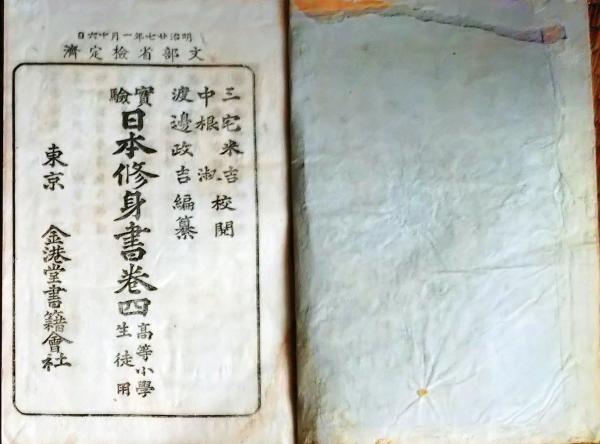 明治廿七年一月十六日
文部省檢定濟
三宅米吉
中根淑 校閲
渡邊政吉編纂
實驗 日本修身書卷四 高等小學生徒用
東京 金港堂書籍會社